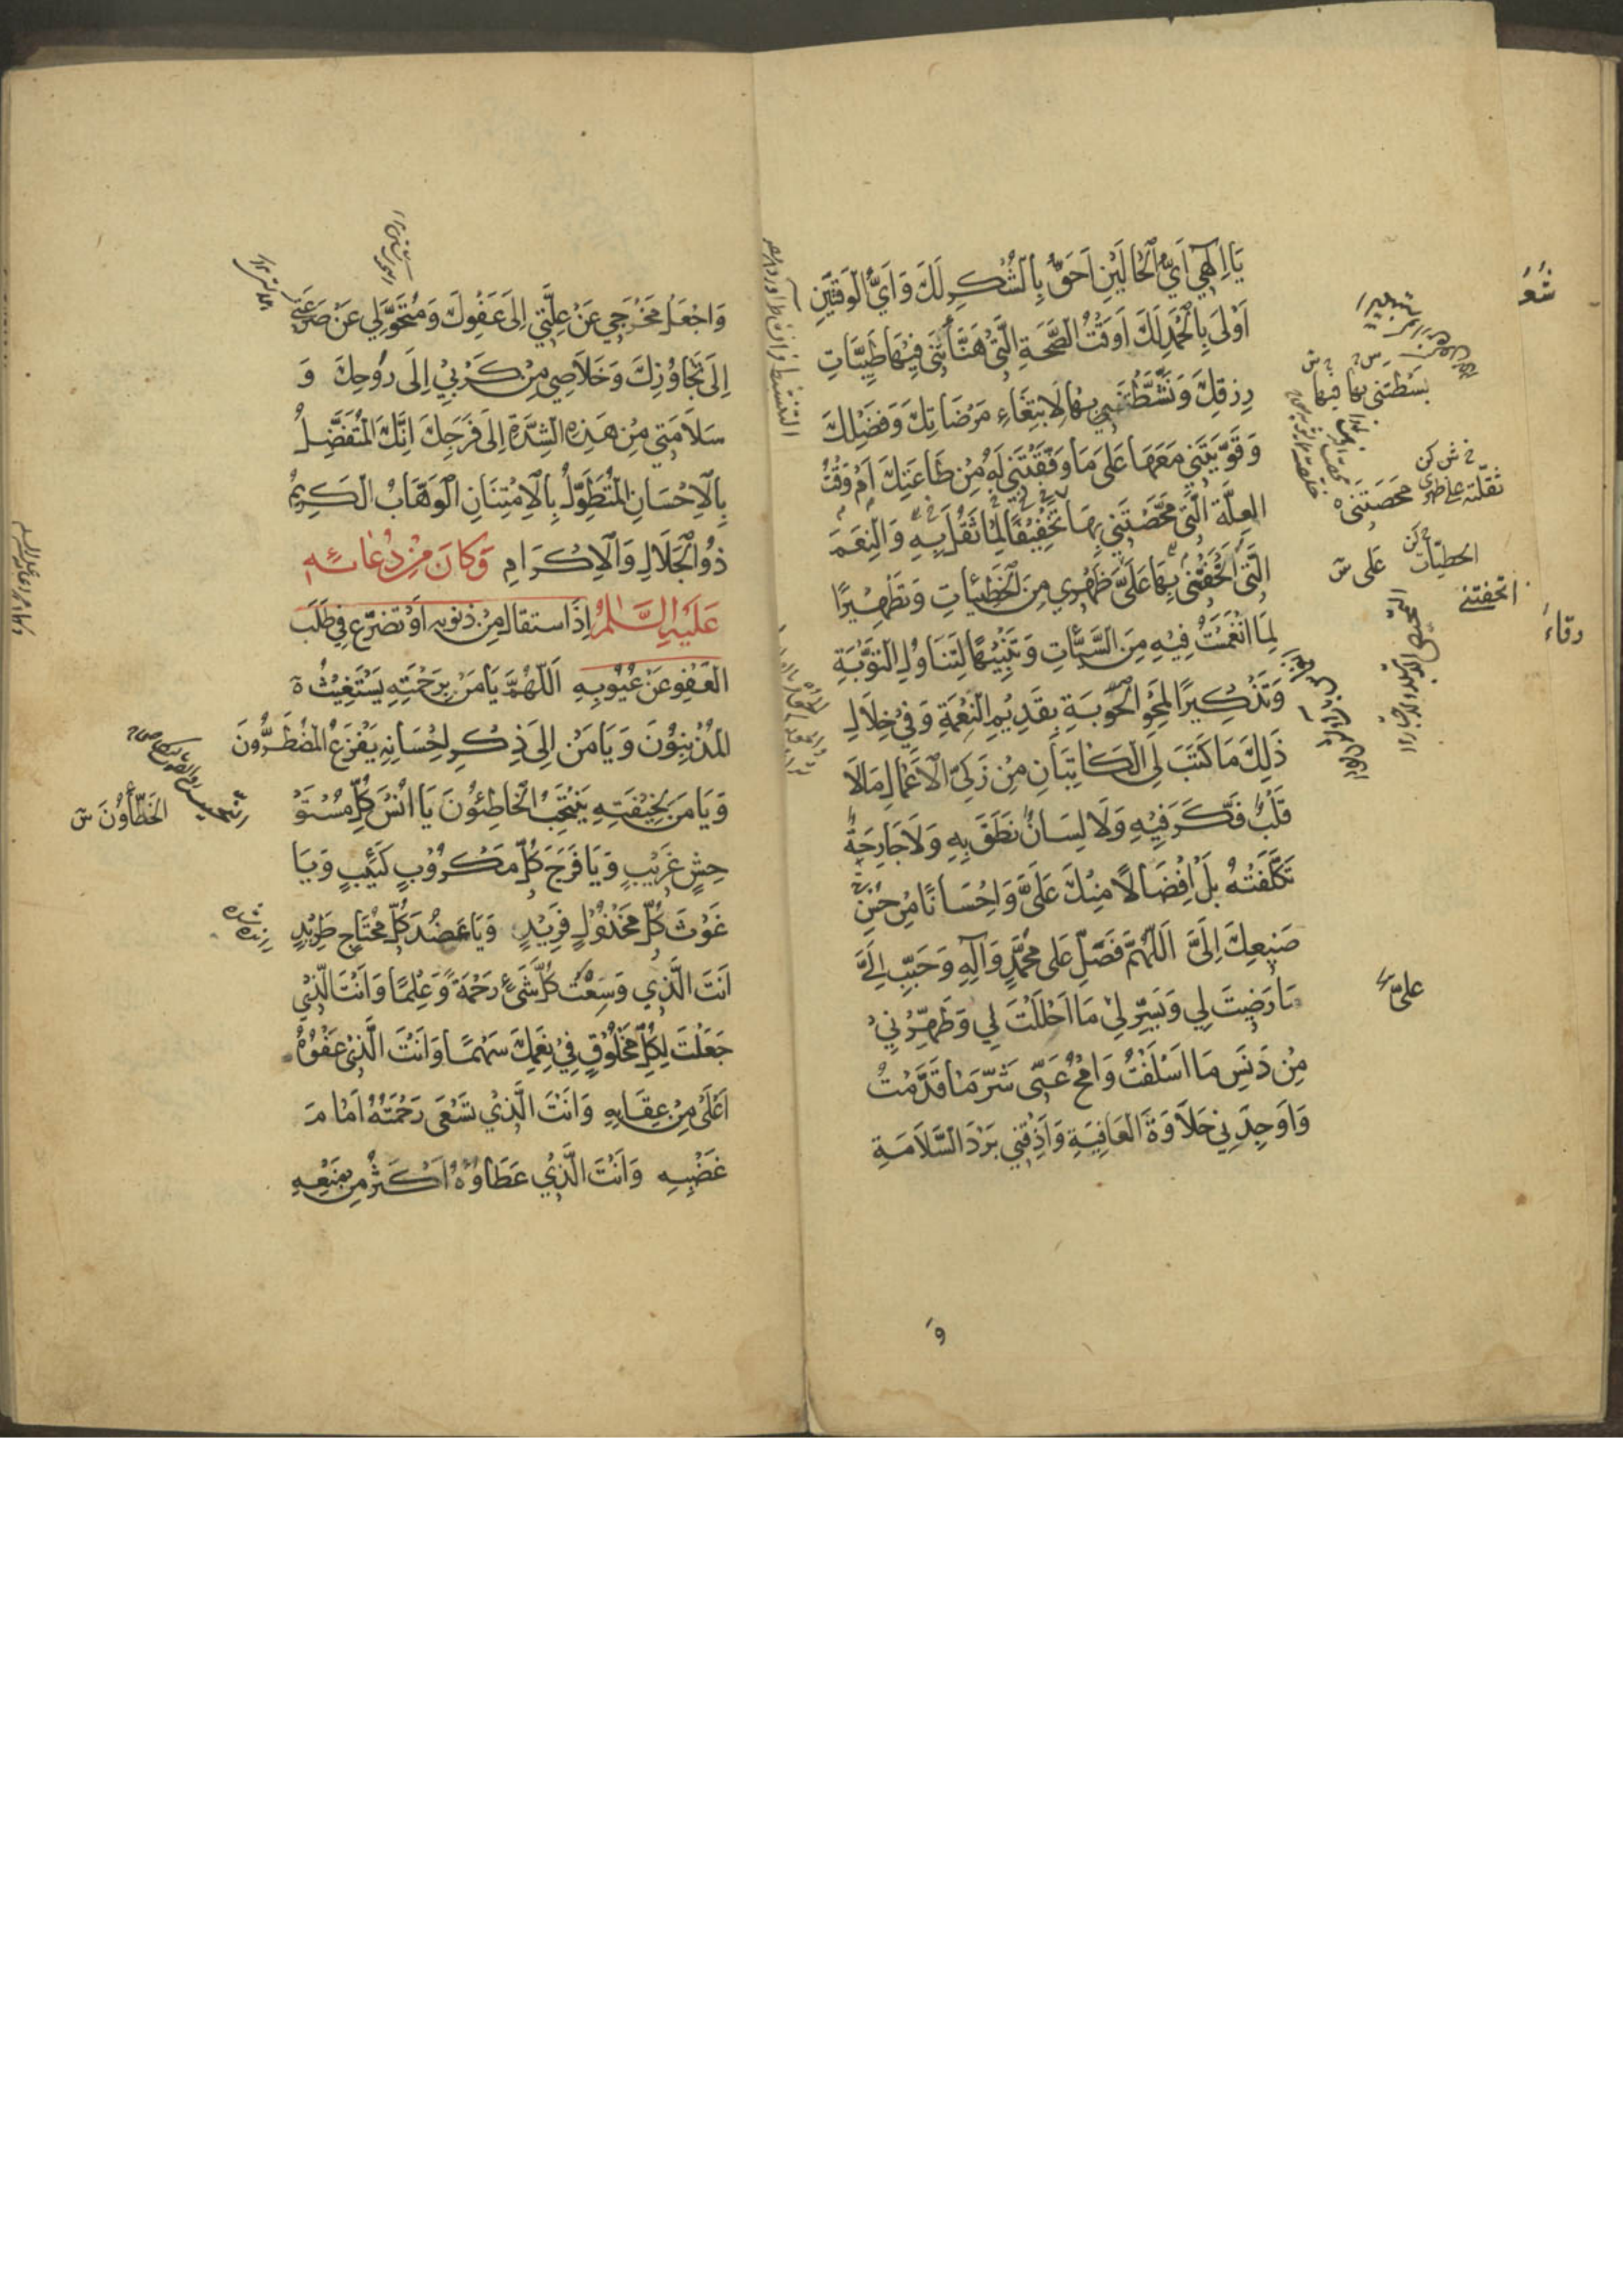 يَا اِلٰهِي اَيُّ الْحَالَيْنِ اَحَقُّ بِالشُّكْرِ لَكَ وَاَيُّ الْوَقْتَيْنِ
اَوْلٰى بِالْحَمْدِ لَكَ اَوَقْتُ الصِّحَّةِ الَّتِي هَنَّأْتَنِي فِيهَا طَيِّبَاتِ
رِزْقِكَ وَنَشَّطْتَنِي بِهَا لِابْتِغَاءِ مَرْضَاتِكَ وَفَضْلِكَ
وَقَوَّيْتَنِي مَعَهَا عَلٰى مَا وَفَّقْتَنِي لَهُ مِنْ طَاعَتِكَ اَمْ وَقْتُ
الْعِلَّةِ الَّتِي مَحَّصْتَنِي بِهَا تَخْفِيفًا لِمَا ثَقُلَ بِهِ وَالنِّعَمَ
الَّتِي اَتْحَفْتَنِي بِهَا عَلَيَّ ظَهْرِي مِنَ الْخَطِيئَاتِ وَتَطْهِيرًا
لِمَا انْغَمَسْتُ فِيهِ مِنَ السَّيِّئَاتِ وَتَنْبِيهًا لِتَنَاوُلِ التَّوْبَةِ
وَتَذْكِيرًا لِمَحْوِ الْحَوْبَةِ بِقَدِيمِ النِّعْمَةِ وَفِي خِلَالِ
ذٰلِكَ مَا كَتَبَ لِيَ الْكَاتِبَانِ مِنْ زَكِيِّ الْاَعْمَالِ مَا لَا
قَلْبٌ فَكَّرَ فِيهِ وَلَا لِسَانٌ نَطَقَ بِهِ وَلَا جَارِحَةٌ
تَكَلَّفَتْهُ بَلْ اِفْضَالًا مِنْكَ عَلَيَّ وَاِحْسَانًا مِنْ حُسْنِ
صَنِيعِكَ اِلَيَّ اَللّٰهُمَّ فَصَلِّ عَلٰى مُحَمَّدٍ وَآلِهِ وَحَبِّبْ اِلَيَّ
مَا رَضِيتَ لِي وَيَسِّرْ لِي مَا اَحْلَلْتَ بِي وَطَهِّرْنِي
مِنْ دَنَسِ مَا اَسْلَفْتُ وَامْحُ عَنِّي شَرَّ مَا قَدَّمْتُ
وَاَوْجِدْنِي حَلَاوَةَ الْعَافِيَةِ وَاَذِقْنِي بَرْدَ السَّلَامَةِ
وَ
بَسَطْتَنِي بها فيها
ثقلته على ظهري
مَحَصْتَنِي
الخطيّات
على ش
اتحفتني
عليّ
وَاجْعَلْ مَخْرَجِي عَنْ عِلَّتِي اِلٰى عَفْوِكَ وَمُتَحَوَّلِي عَنْ صَرْعَتِي
اِلٰى تَجَاوُزِكَ وَخَلَاصِي مِنْ كَرْبِي اِلٰى رَوْحِكَ وَ
سَلَامَتِي مِنْ هَذِهِ الشِّدَّةِ اِلٰى فَرَجِكَ اِنَّكَ الْمُتَفَضِّلُ
بِالْاِحْسَانِ الْمُتَطَوِّلُ بِالْاِمْتِنَانِ الْوَهَّابُ الْكَرِيمُ
ذُو الْجَلَالِ وَالْاِكْرَامِ وَكَانَ مِنْ دُعَائِهِ
عَلَيْهِ السَّلٰمُ اِذَا اسْتَقَالَ مِنْ ذُنُوبِهِ اَوْ تَضَرَّعَ فِي طَلَبِ
الْعَفْوِ عَنْ عُيُوبِهِ اَللّٰهُمَّ يَا مَنْ بِرَحْمَتِهِ يَسْتَغِيثُ
الْمُذْنِبُونَ وَيَا مَنْ اِلٰى ذِكْرِ اِحْسَانِهِ يَفْزَعُ الْمُضْطَرُّونَ
وَيَا مَنْ لِخِيفَتِهِ يَنْتَحِبُ الْخَاطِئُونَ يَا اُنْسَ كُلِّ مُسْتَوْ
حِشٍ غَرِيبٍ وَيَا فَرَجَ كُلِّ مَكْرُوبٍ كَئِيبٍ وَيَا
غَوْثَ كُلِّ مَخْذُولٍ فَرِيدٍ وَيَا عَضُدَ كُلِّ مُحْتَاجٍ طَرِيدٍ
اَنْتَ الَّذِي وَسِعْتَ كُلَّ شَيْءٍ رَحْمَةً وَعِلْمًا وَاَنْتَ الَّذِي
جَعَلْتَ لِكُلِّ مَخْلُوقٍ فِي نِعَمِكَ سَهْمًا وَاَنْتَ الَّذِي عَفْوُهُ
اَعْلٰى مِنْ عِقَابِهِ وَاَنْتَ الَّذِي تَسْعٰى رَحْمَتُهُ اَمَامَ
غَضَبِهِ وَاَنْتَ الَّذِي عَطَاؤُهُ اَكْثَرُ مِنْ مَنْعِهِ
الْخَطَّاؤُنَ ش